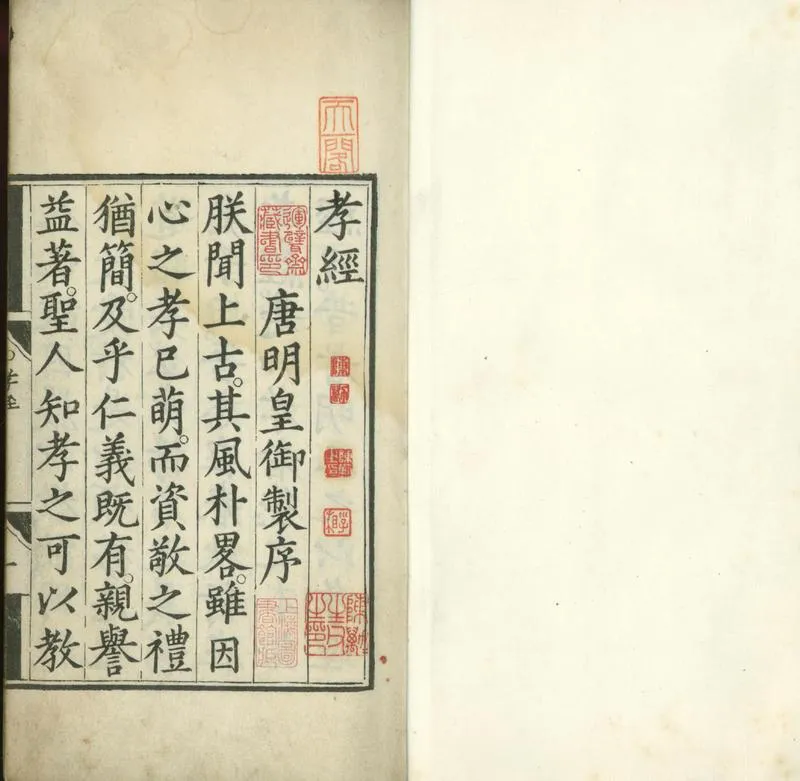 孝經
唐明皇御製序
朕聞上古。其風朴畧。雖因
心之孝已萌。而資敬之禮
猶簡。及乎仁義既有。親譽
益著。聖人知孝之可以教